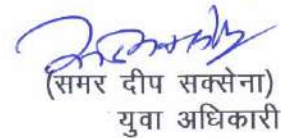 (समर दीप सक्सेना)
युवा अधिकारी